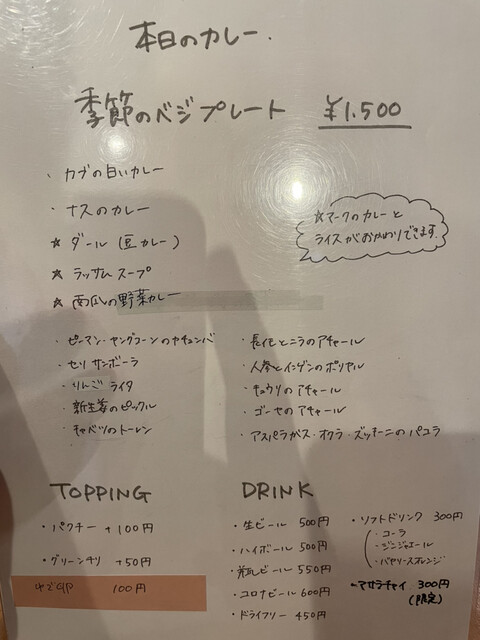 本日のカレー.
季節のベジプレート ¥1,500
・カブの白いカレー
・ナスのカレー
☆ダール(豆カレー)
☆ラッサムスープ
☆南瓜の野菜カレー
☆マークのカレーと
ライスがおかわりできます.
・ピーマン・ヤングコーンのカチュンバ
・セリサンボーラ
・りんごライタ
・新生姜のピックル
・キャベツのトーレン
・長芋とニラのアチャール
・人参とインゲンのポリヤル
・キュウリのアチャール
・ゴーヤのアチャール
・アスパラガス・オクラ・ズッキーニのパコラ
TOPPING
・パクチー +100円
・グリーンチリ +50円
100円
DRINK
・生ビール 500円
・ハイボール 500円
・瓶ビール 550円
・コロナビール 600円
・ドライフリー 450円
・ソフトドリンク 300円
・コーラ
・ジンジャエール
・バヤリースオレンジ
・マサラチャイ 300円
(限定)